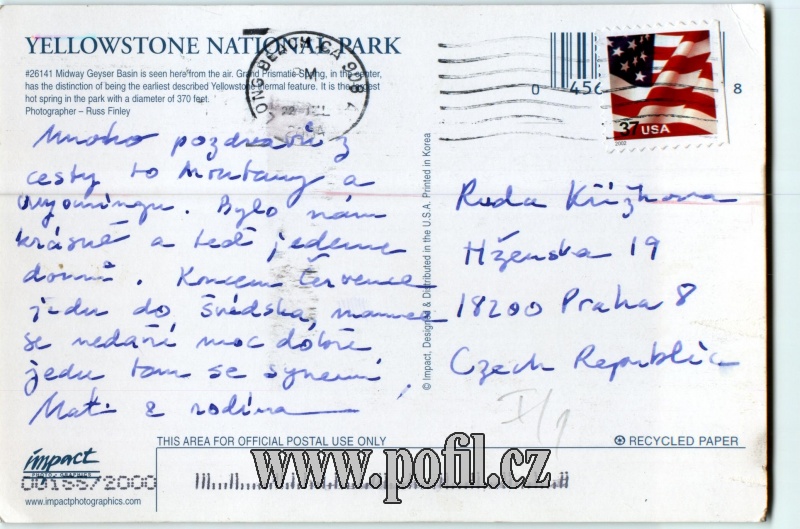 YELLOWSTONE NATIONAL PARK
#26141 Midway Geyser Basin is seen here from the air. Grand Prismatic Spring, in the center,
has the distinction of being the earliest described Yellowstone thermal feature. It is the largest
hot spring in the park with a diameter of 370 feet.
Photographer – Russ Finley
LONG BEACH CA 908
37 USA
2002
0
456
8
Mnoho pozdravů z
cesty to Montany a
Wyomingu. Bylo nám
krásně a teď jedeme
domů. Koncem července
jedu do Švédska, mamce
se nedaří moc dobře
jedu tam se synem
Mat. & rodina
© Impact, Designed & Distributed in the U.S.A. Printed in Korea
Ruda Křížkova
Hženska 19
18200 Praha 8
Czech Republic
I/1
THIS AREA FOR OFFICIAL POSTAL USE ONLY
RECYCLED PAPER
impact
PHOTO GRAPHICS
www.impactphotographics.com
www.pofil.cz